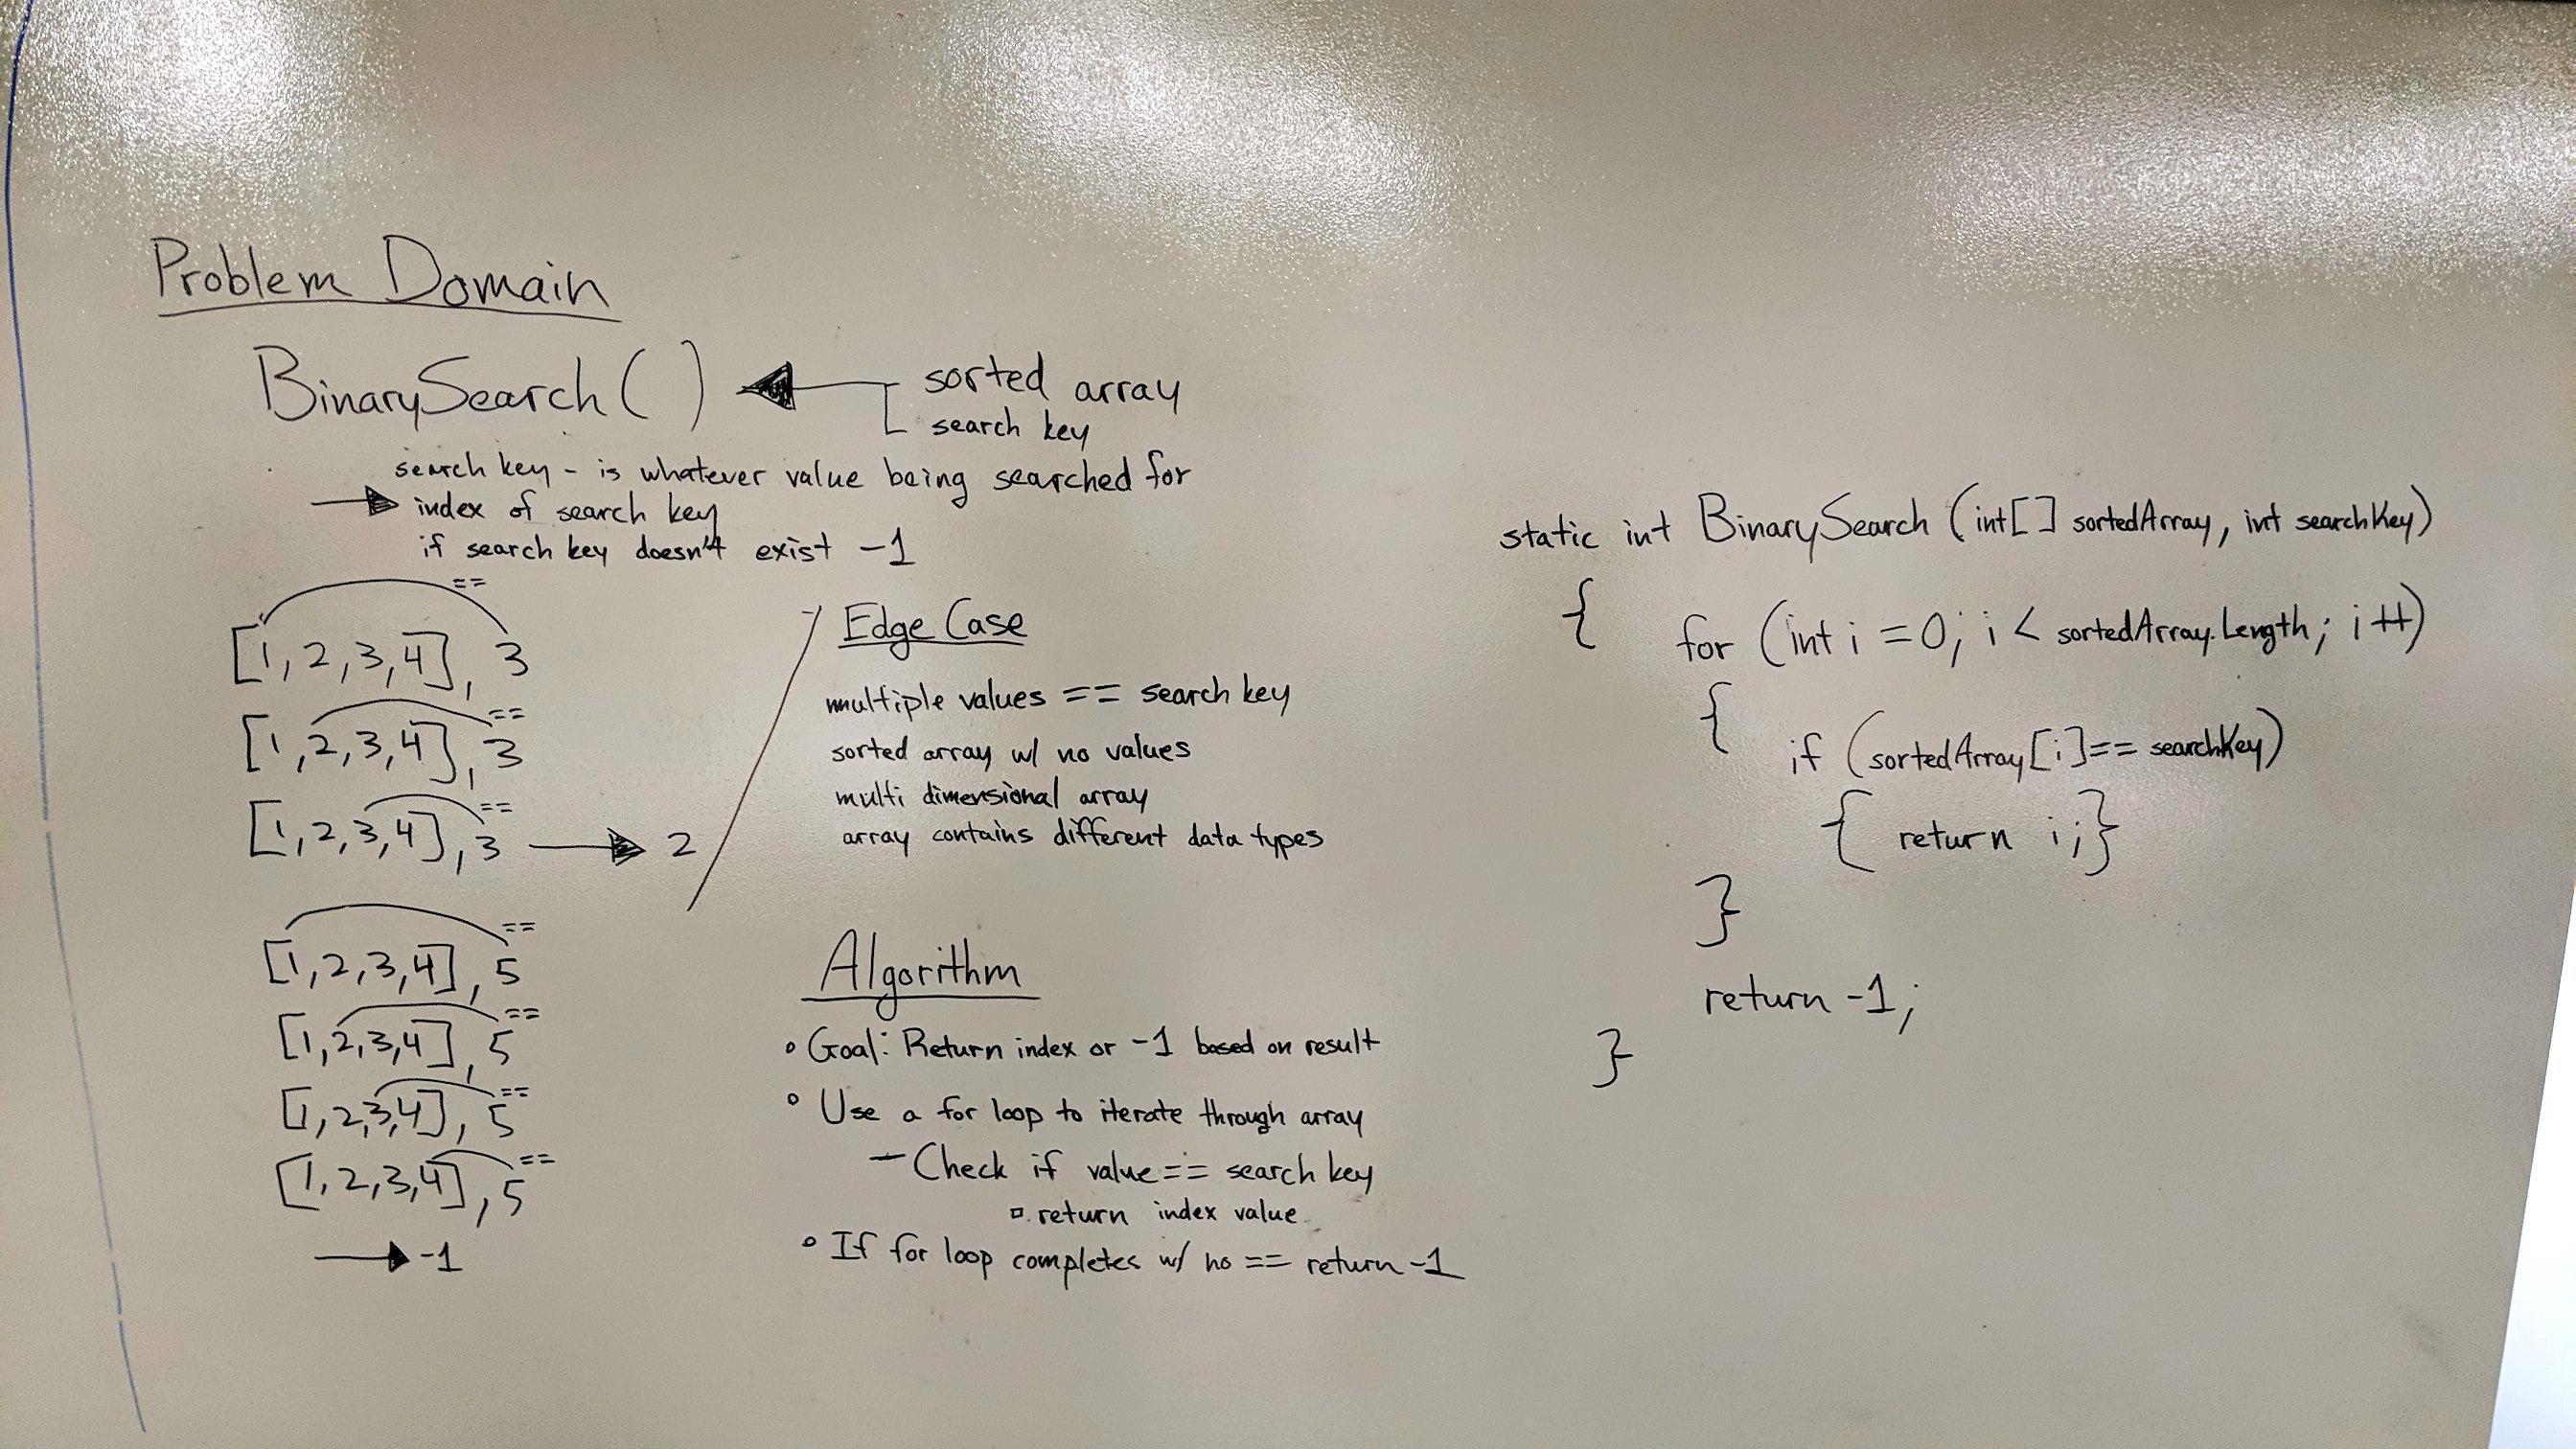 Problem Domain
BinarySearch( )
sorted array
search key
search key - is whatever value being searched for
index of search key
if search key doesn't exist -1
==
[1, 2, 3, 4], 3
==
[1, 2, 3, 4], 3
==
[1, 2, 3, 4], 3 → 2
==
[1, 2, 3, 4], 5
==
[1, 2, 3, 4], 5
==
[1, 2, 3, 4], 5
==
[1, 2, 3, 4], 5
→ -1
Edge Case
multiple values == search key
sorted array w/ no values
multi dimensional array
array contains different data types
Algorithm
◦ Goal: Return index or -1 based on result
◦ Use a for loop to iterate through array
- Check if value == search key
▫ return index value
◦ If for loop completes w/ no == return -1
static int BinarySearch (int[] sortedArray, int searchKey)
{
for (int i = 0; i < sortedArray.Length; i++)
{
if (sortedArray[i] == searchKey)
{ return i; }
}
return -1;
}